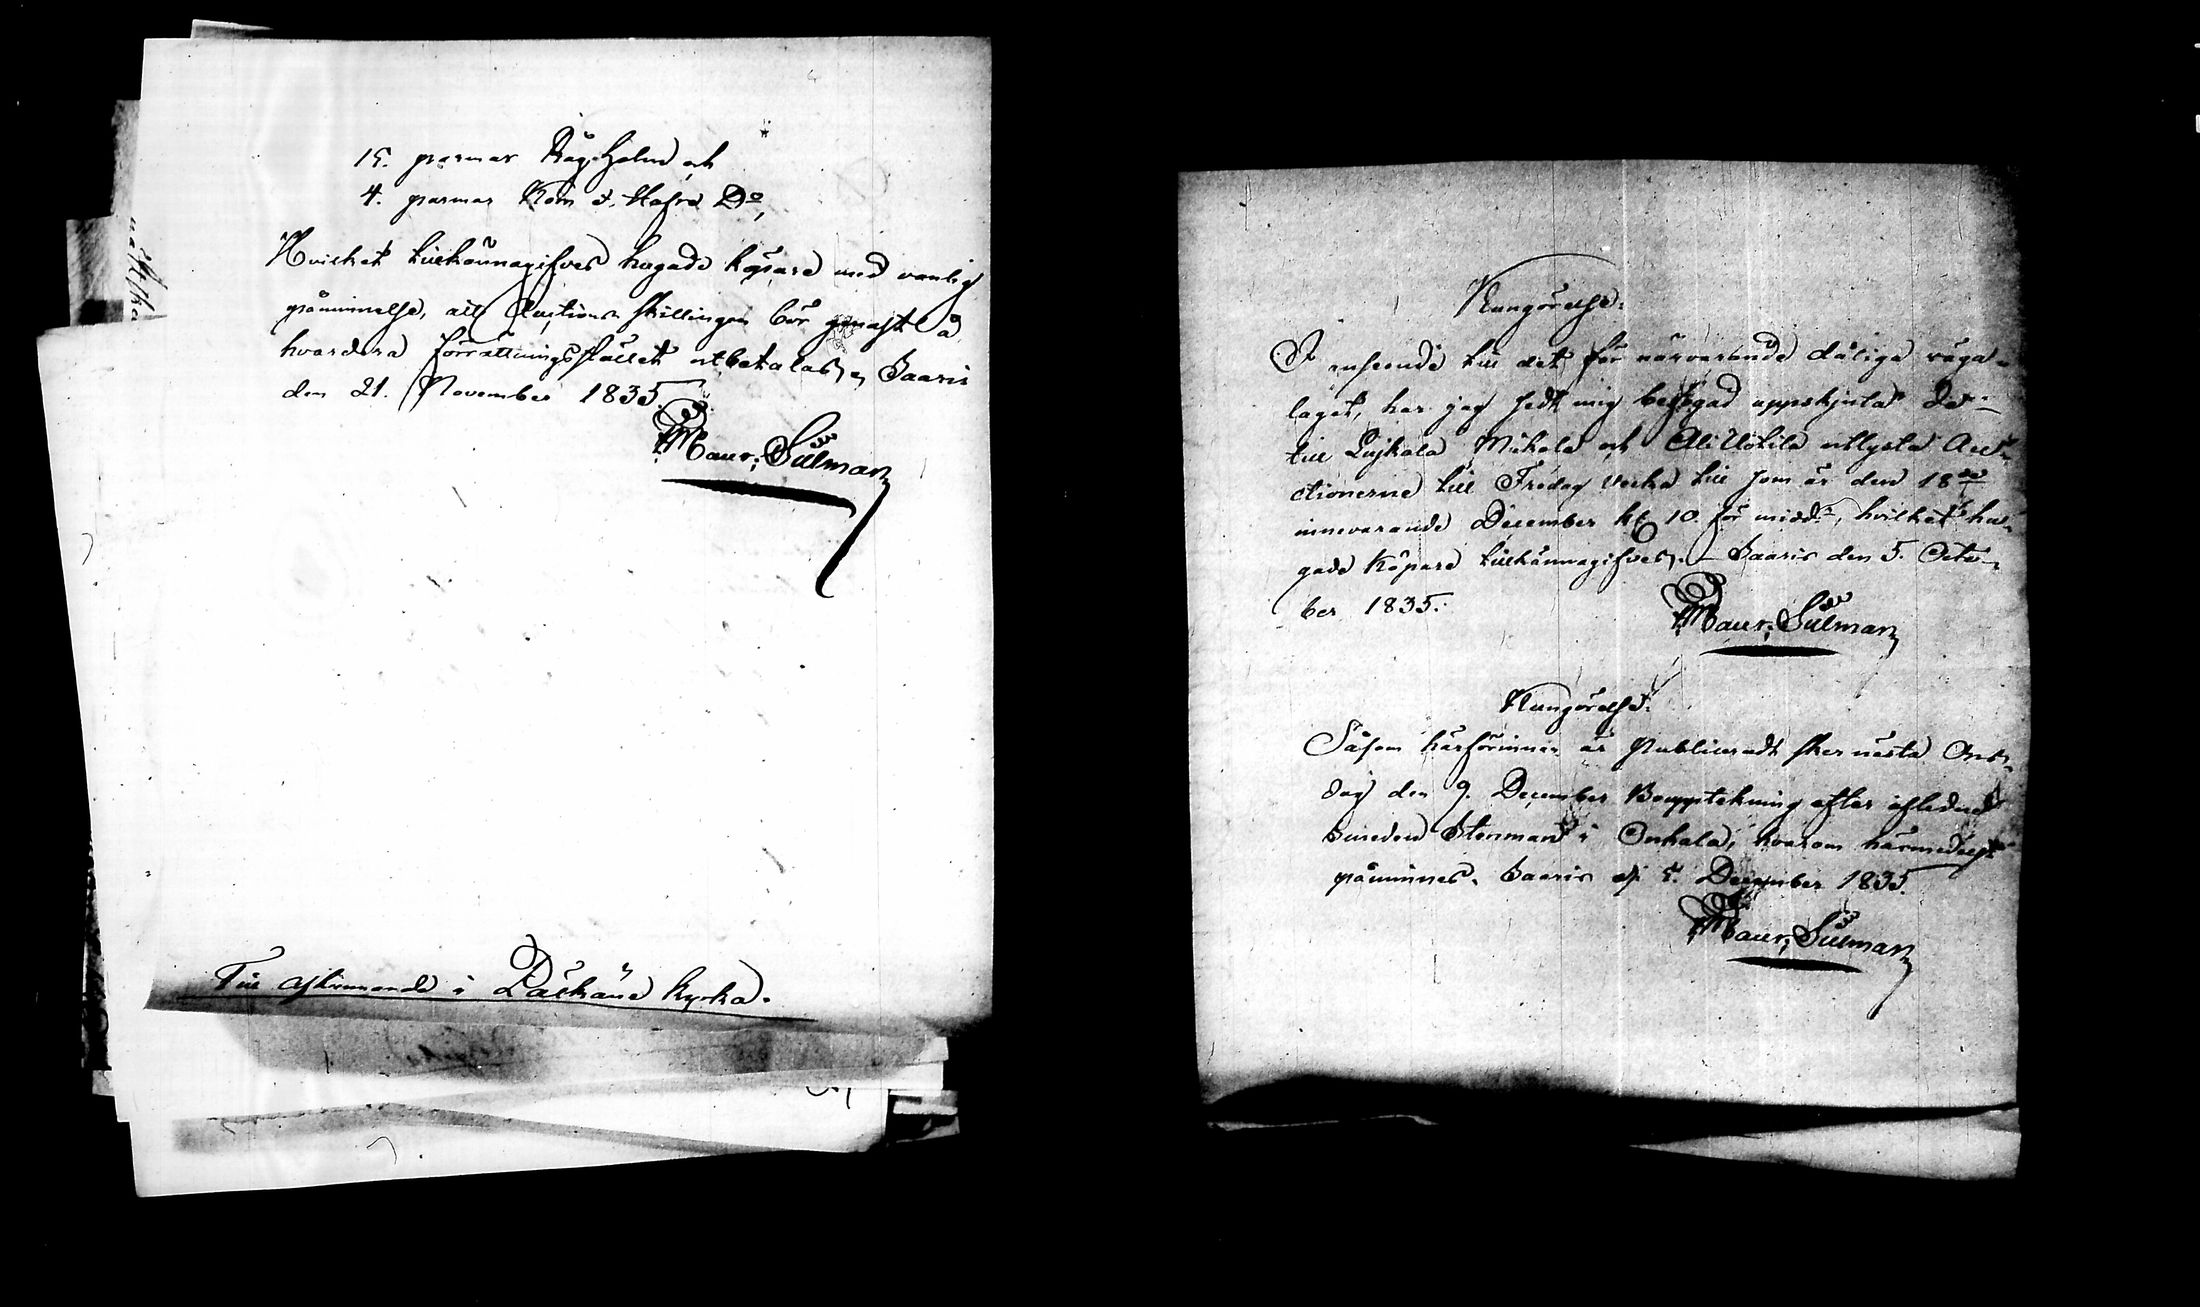 15. parmar Råg-Halm och
4. parmar Korn o. Hafre Do,
Hvilket tillkännagifves hugade köpare med vanlig
påminnelse, att Auctions Skillingen bör genast å
hvardera förrättningsstället utbetalas, Saaris
den 21. November 1835.
Maur. Silman
Till afkunnande i Pälkäne kyrka.
Kungörelse.
I anseende till det för närvarande dåliga väga-
laget, har jag sedt mig befogad uppskjuta de
till Mikola och Ali Uotila utlysta Auc-
tionerne till Fredag vecka till som är den 18de
innevarande December kl 10. för midd., hvilket hu-
gade Köpare tillkännagifves. – Saaris den 5. Octo-
ber 1835.
Maur. Silman
Kungörelse.
Såsom härförinnan är Publiceradt sker nästa Ons-
dag den 9. December Bouppteckning efter afledne
Smeden Stenman i Onkala, hvarom härmedelst
påminnes. Saaris d. 5. December 1835.
Maur. Silman